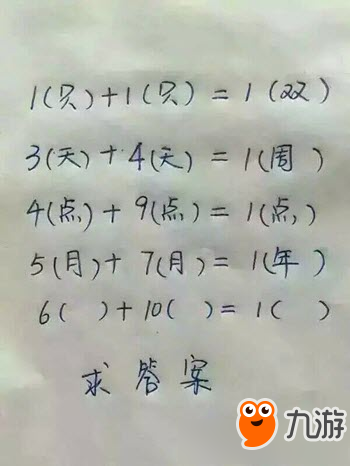 1(只)+1(只)=1(双)
3(天)+4(天)=1(周 )
4(点)+9(点)=1(点)
5(月)+7(月)=1(年)
6( )+10( )=1( )
求答案
九游